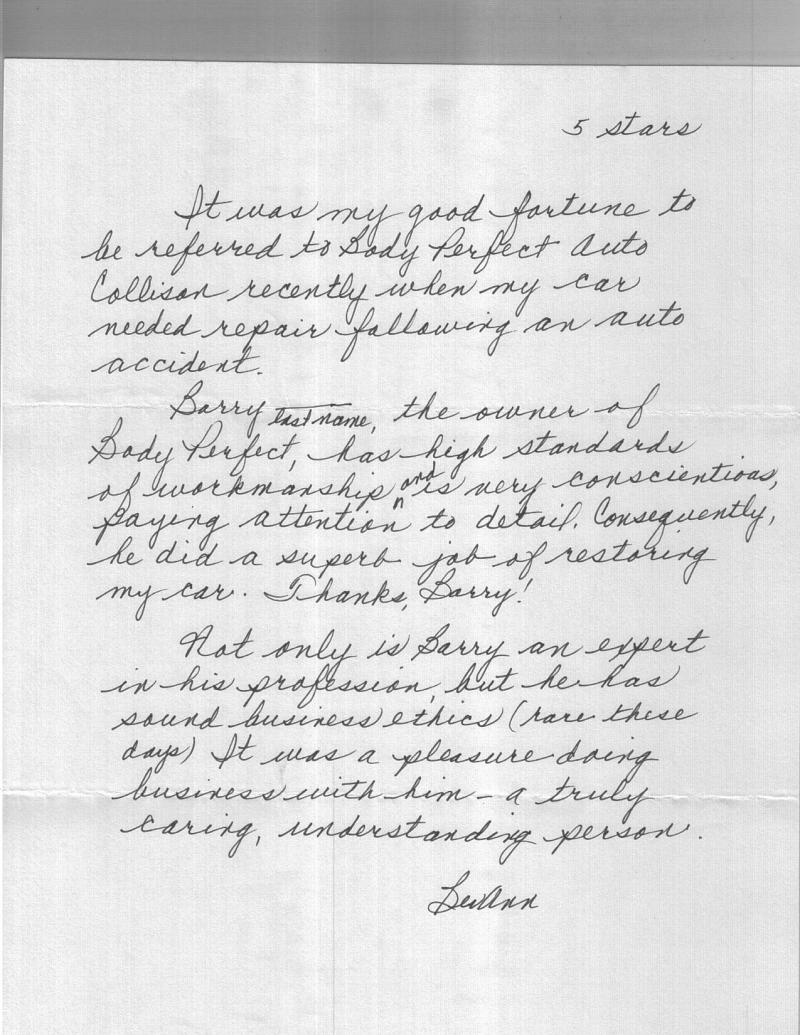 5 stars
It was my good fortune to
be referred to Body Perfect Auto
Collison recently when my car
needed repair following an auto
accident.
Barry last name, the owner of
Body Perfect, has high standards
of workmanship and is very conscientious,
paying attention to detail. Consequently,
he did a superb job of restoring
my car. Thanks, Barry!
Not only is Barry an expert
in his profession, but he has
sound business ethics (rare these
days) It was a pleasure doing
business with him - a truly
caring, understanding person.